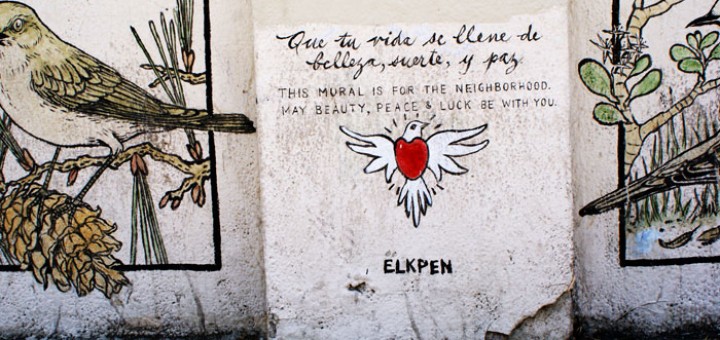 Que tu vida se llene de
belleza, suerte, y paz.
THIS MURAL IS FOR THE NEIGHBORHOOD.
MAY BEAUTY, PEACE & LUCK BE WITH YOU.
ELKPEN